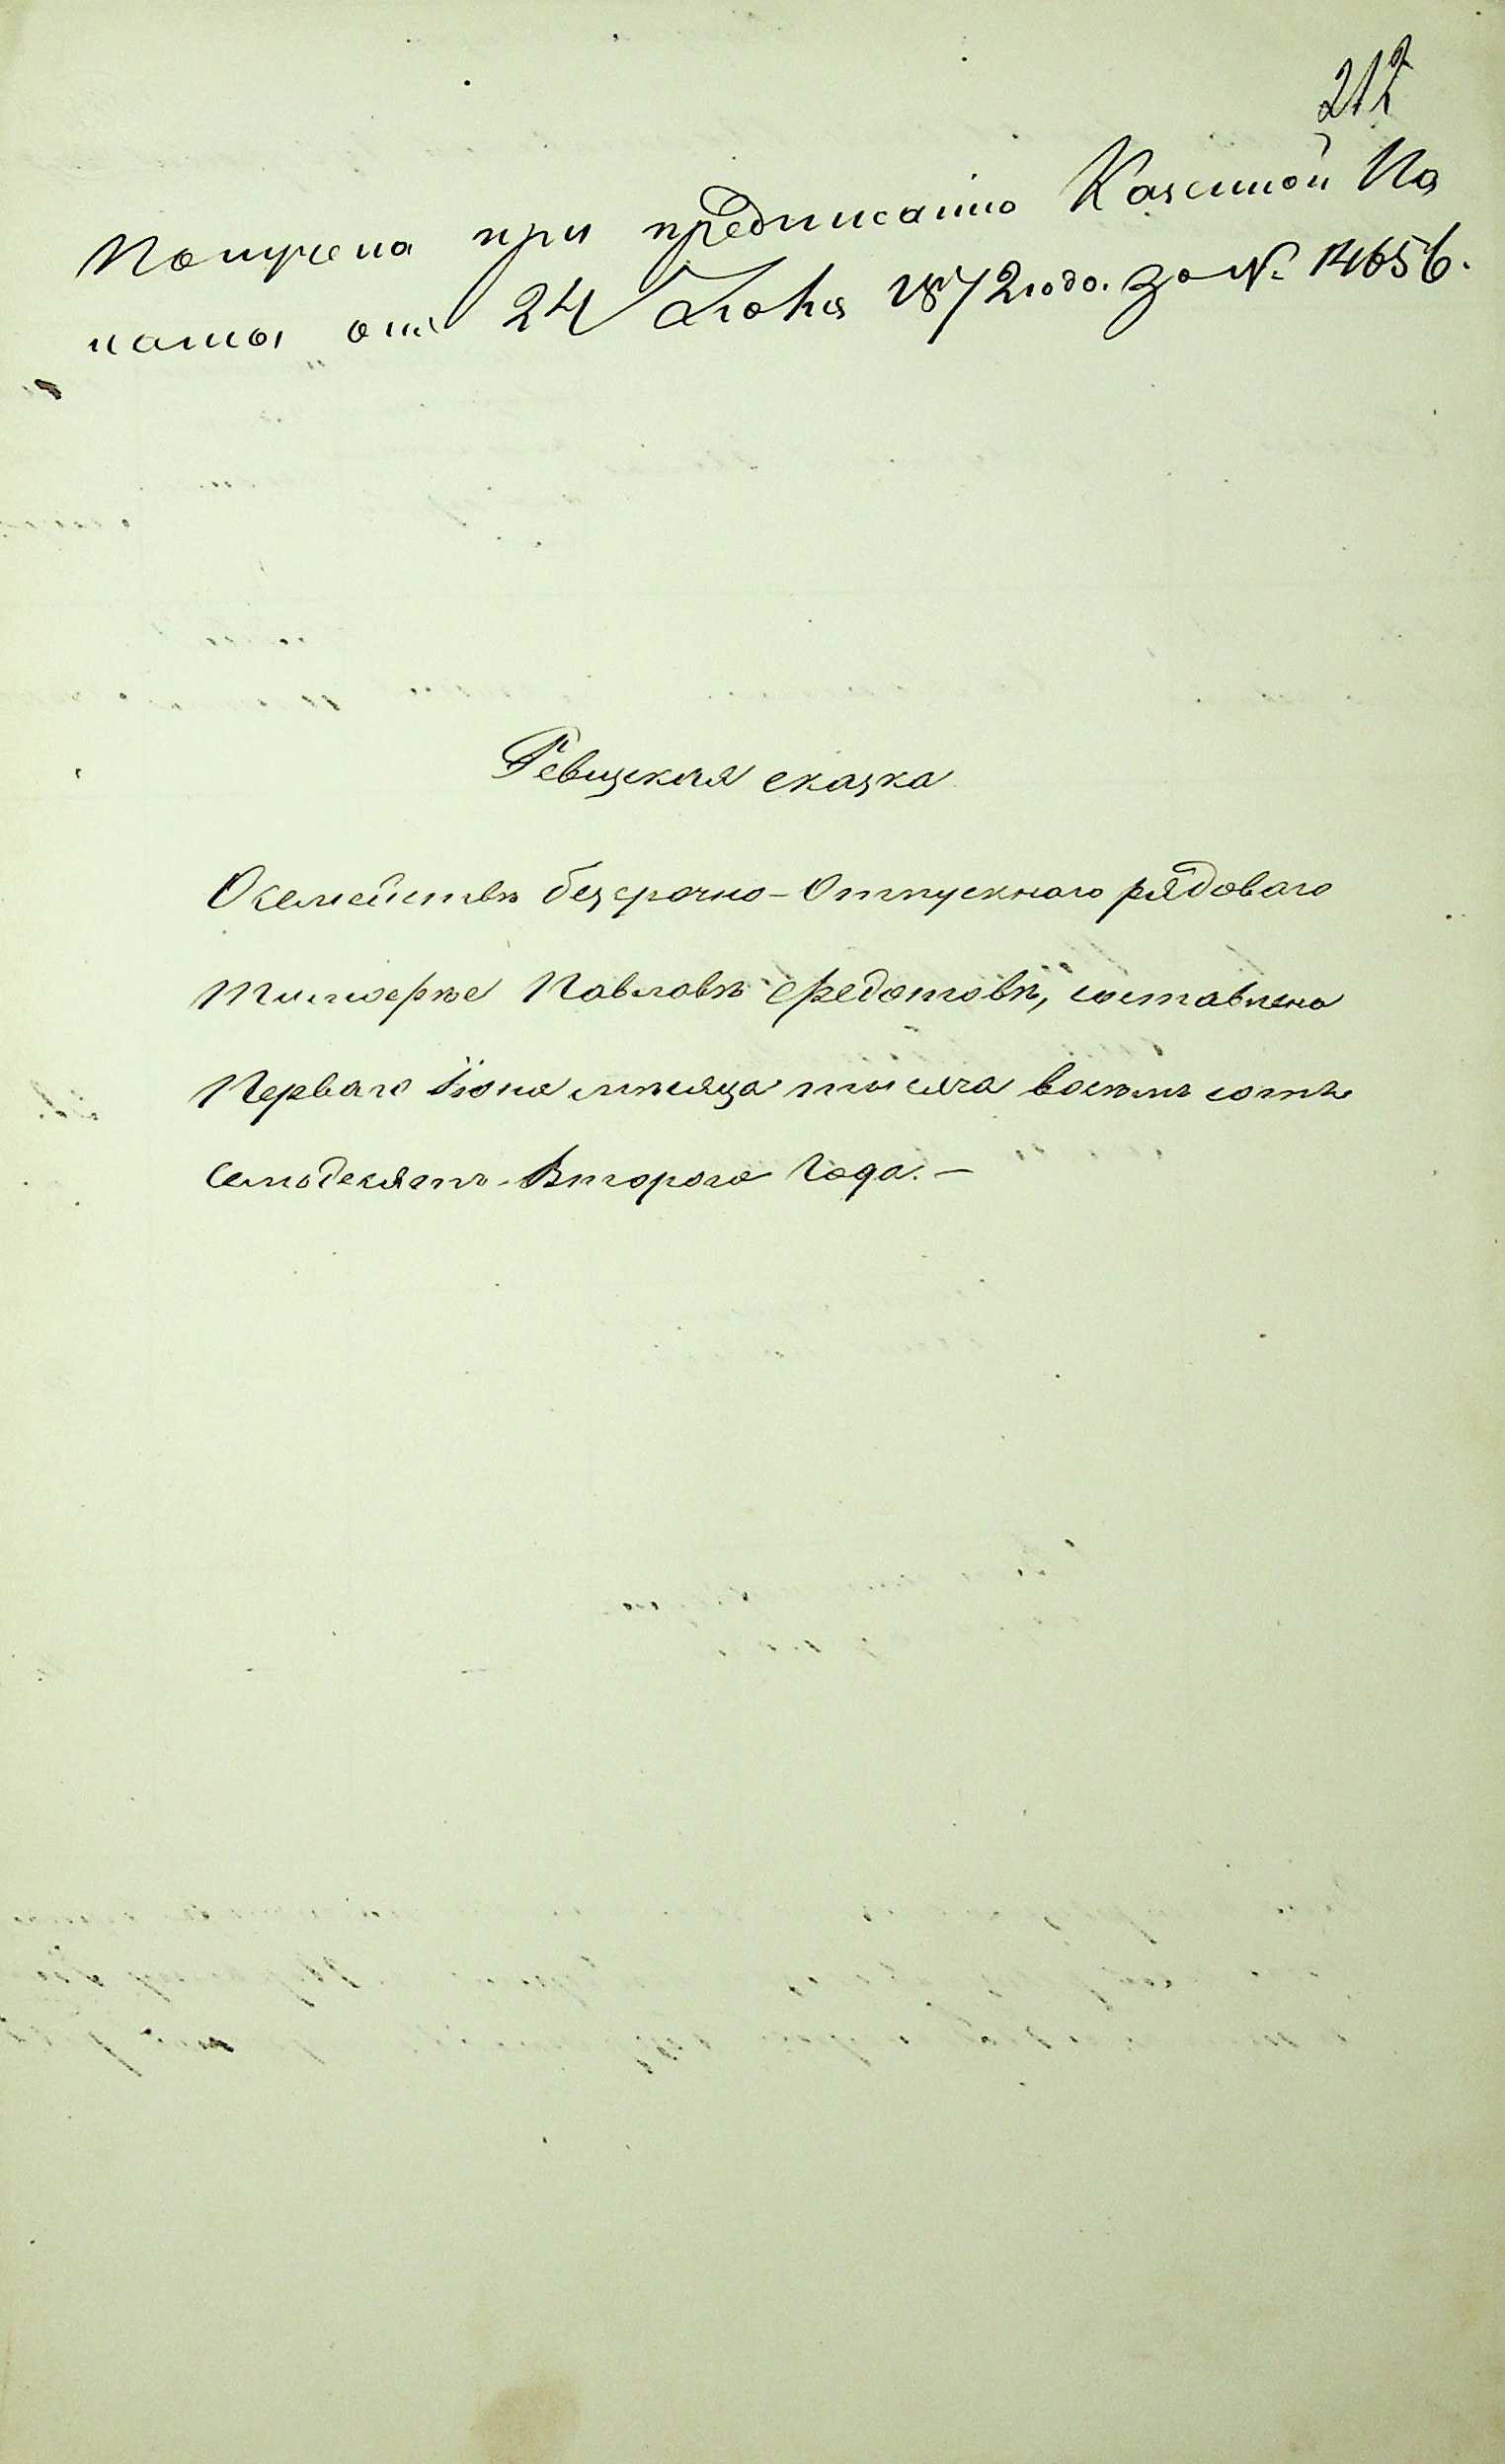 212
Получена при предписанiю Казенной Па
латы отъ 24 Iюня 1872 года. за № 14656.
Ревизская сказка
О семействѣ безсрочно-Отпускнаго рядоваго
Тимофѣе Павловѣ Ѳедотовѣ, составлена
Перваго Iюня мѣсяца тысяча восемь сотъ
семьдесятъ-Втораго Года. —